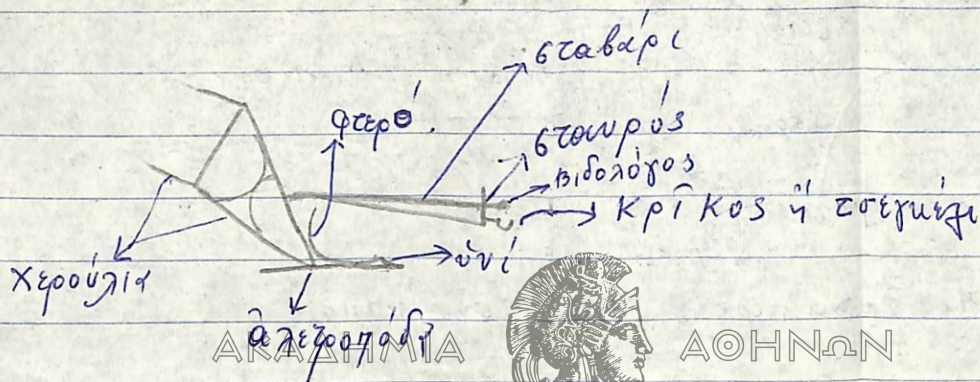 σταβάρι
φτερό.
σταυρός
βιδολόγος
κρῖκος ἤ τσεγκέλι
ὑνί
χερούλια
ἀλετροπόδι
ΑΚΑΔΗΜΙΑ ΑΘΗΝΩΝ